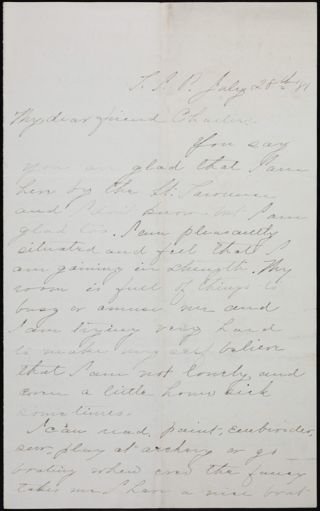 T. I. P. July 28th '81
My dear friend Charlie:
You say
you are glad that I am
here by the St. Lawrence
and I don't know but I am
glad too. I am pleasantly
situated and feel that I
am gaining in strength. My
room is full of things to
busy or amuse me and
I am trying very hard
to make my self believe
that I am not lonely and
even a little home sick
sometimes.
I can read, paint, embroider,
sew, play at archery or go
boating when ever the fancy
takes me. I have a nice boat